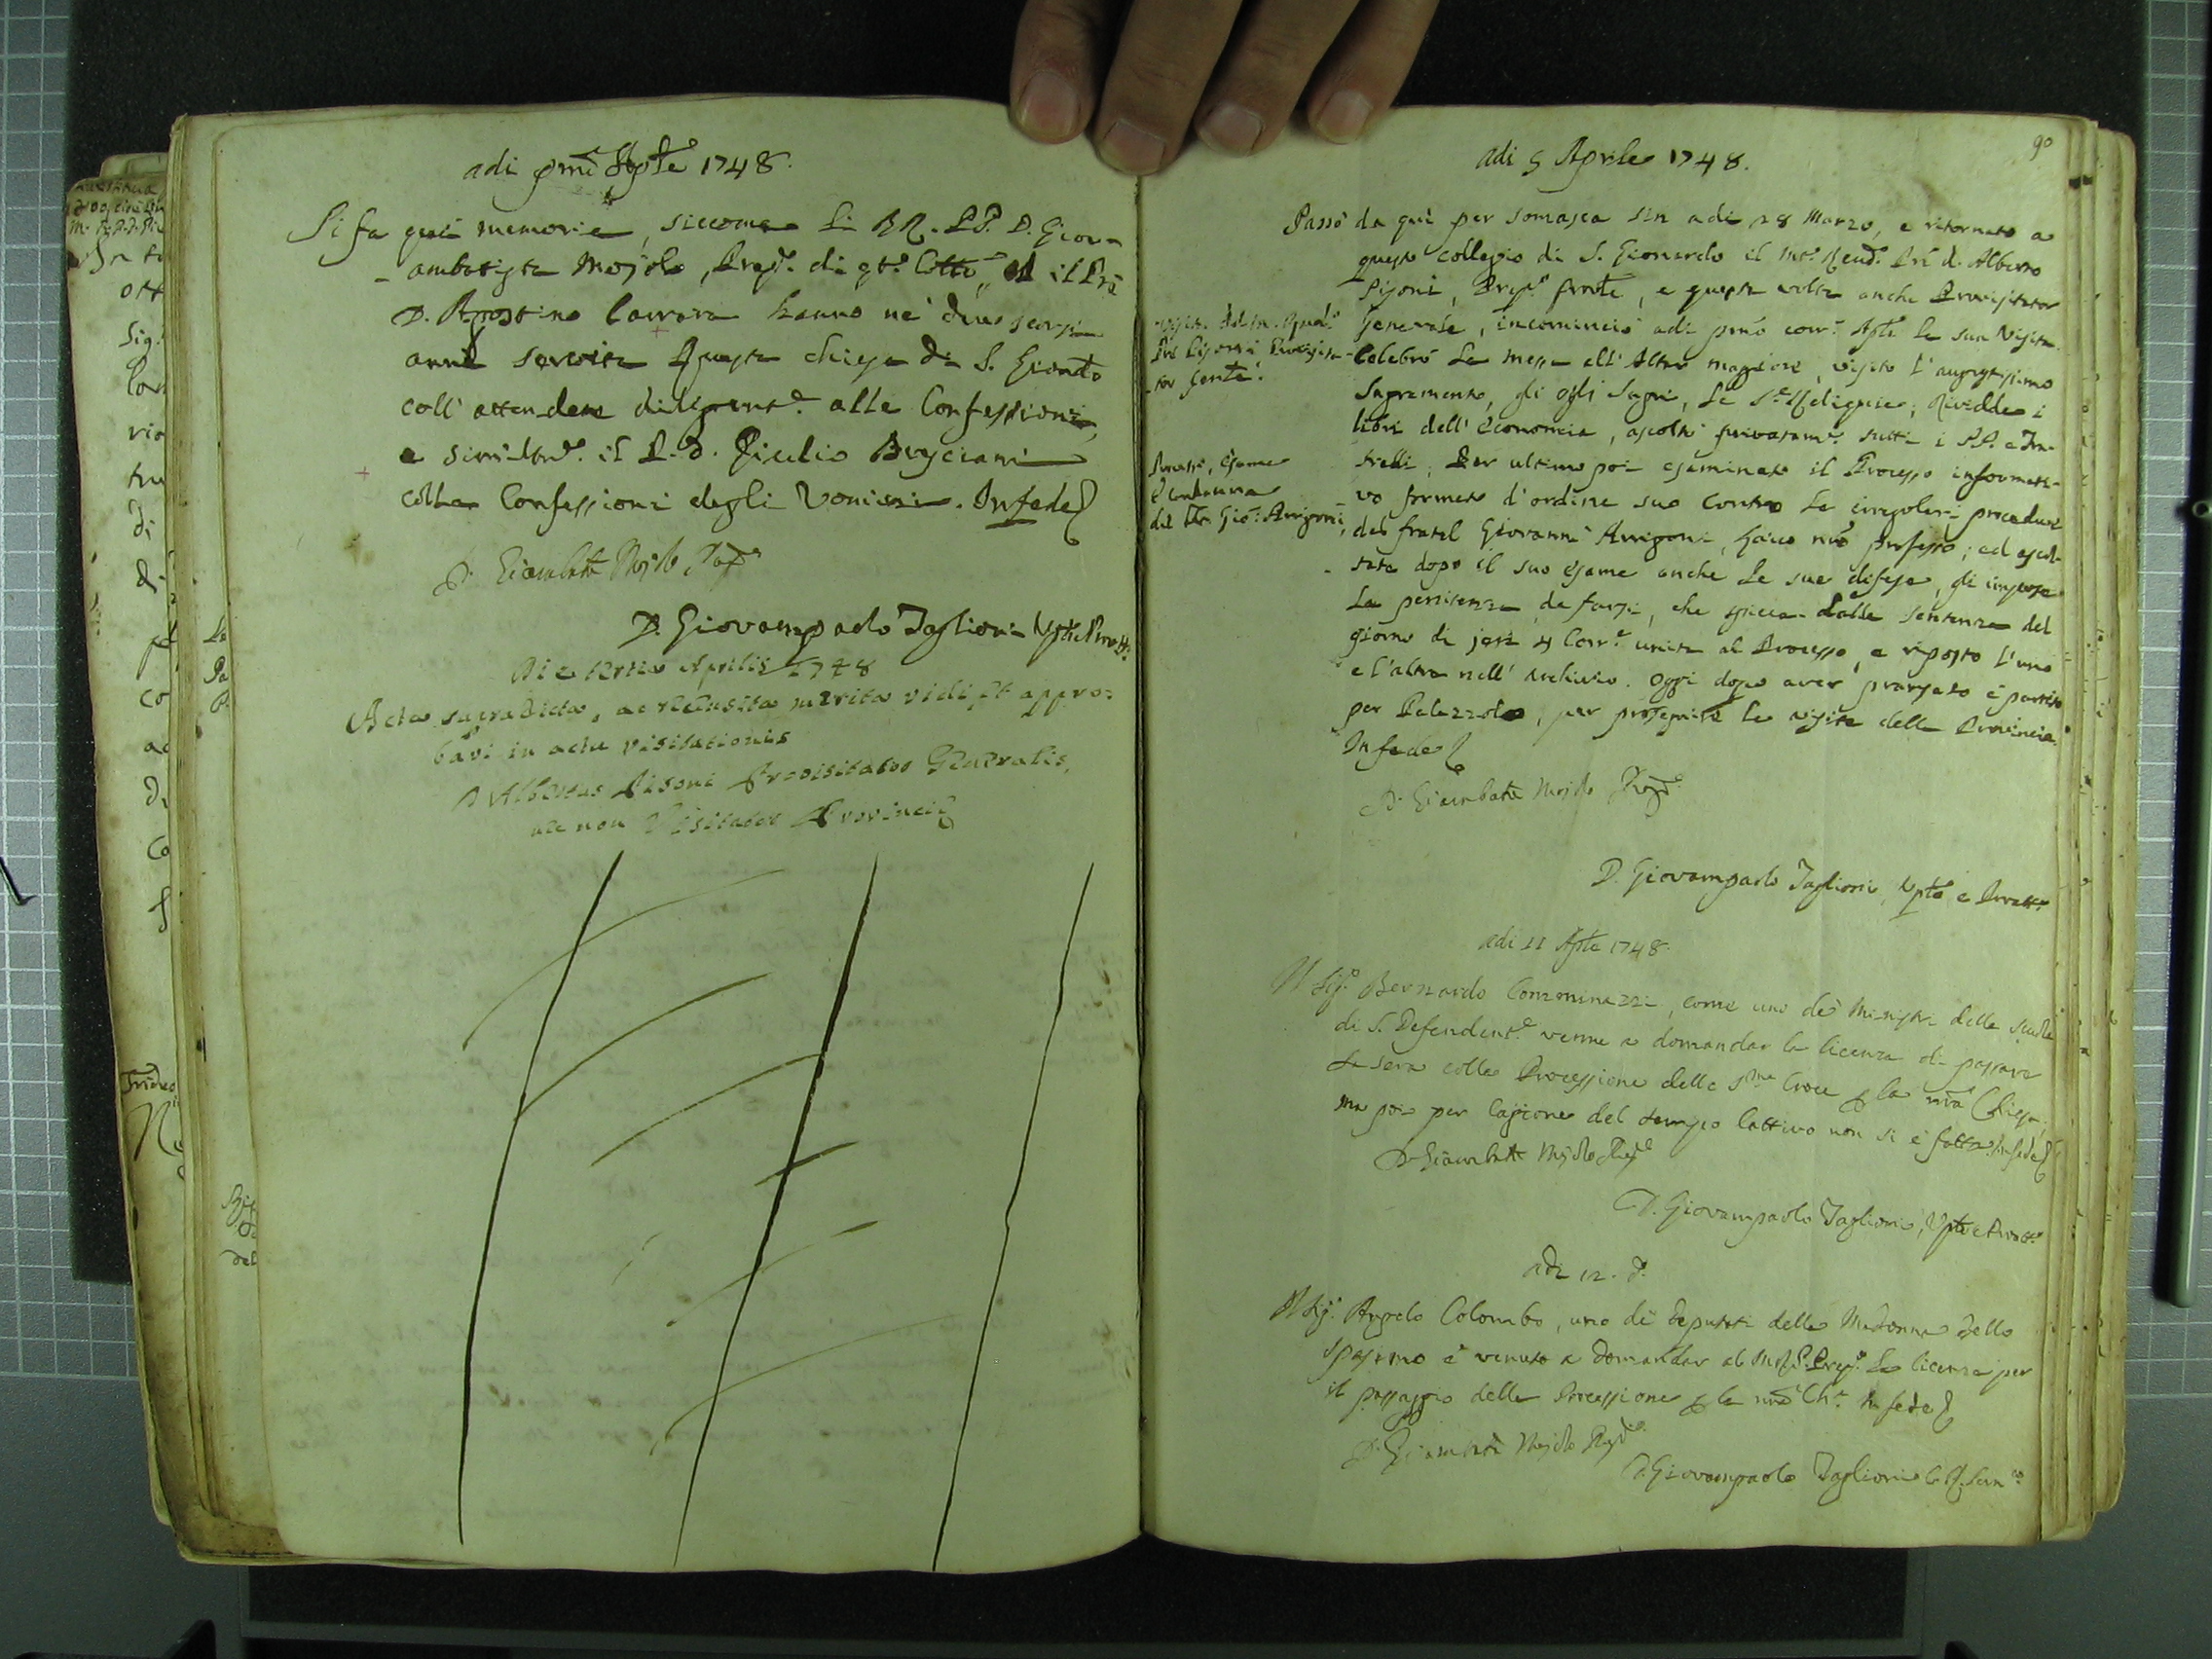 adi pmo Aple 1748.
Si fa qui memoria, siccome li RR. PP. D. Giov-
ambatista Mojolo, Prepo. di qto. Collo, ed il Pre
D. Agostino Carrara hanno ne' due scorsi
anni servita questa chiesa di S. Gionardo
coll' attendere diligente. alle Confessioni,
e similmte. il P. D. Giulio Bresciani
colle Confessioni degli Uomini. In fede
D. Giambatta Mojolo Prepo
D. Giovampaolo Taglioni
Die tertia Aprilis 1748
Acta supradicta, ac recensita merita vidi, et appro-
bavi in actu visitationis
D. Albertus Pisoni Provisitator Generalis,
nec non Visitator Provincie
90
adi 5 Aprile 1748.
Passò da qui per Somasca sin adi 28 Marzo, e ritornato a
questo collegio di S. Gionardo il Mto. Revdo. Pre d. Alberto
Pisoni, e questa volta anche Provisitator
Generale, incominciò adi pmo corre. Aple la sua Visita.
Celebrò la messa all' Altar maggiore, visitò l' augustissimo
Sagramento, gli ogli Sagri, le Se. Reliquie; Rividde i
libri dell' economia, ascoltò privatame. tutti i PP. e Fra-
telli; Per ultimo poi esaminato il Processo informati-
vo formato d' ordine suo contro le irregolari procedure
del fratel Giovanni Arrigoni, laico nro professo; ed ascol-
tate dopo il suo esame anche le sue difese, gli impose
la penitenza da farsi, che spicca dalla sentenza del
giorno di jeri 4 Corre. unita al Processo, e riposto l' uno
e l' altra nell' Archivio. Oggi dopo aver pranzato è partito
per Palazzolo, per proseguire la visita della Provincia.
In fede
D. Giambatta Mojolo Prepo
D. Giovampaolo Taglioni
Visita del M. Rndo.
Pre Pisoni Provisita-
tor Gente.
Processo, esame
e condanna
del Fr. Gio: Arrigoni
adi 11 Aple 1748.
Il Sigr. Bernardo come uno de' Ministri della scuola
di S. Defendente venne a domandar la licenza di passare
la sera colla Processione della Sma Croce p la nra Chiesa,
ma poi per cagione del tempo cattivo non si è fatta. In fede
D. Giambatta Mojolo Prepo
D. Giovampaolo Taglioni
adi 12. do.
Il Sigr. Angelo Colombo, uno de' Deputati della Madonna dello
Spasimo è venuto a domandar al M. R. P. Prepo. la licenza per
il passaggio della Processione p la nra Cha. In fede
D. Giambatta Mojolo Prepo
D. Giovampaolo Taglioni